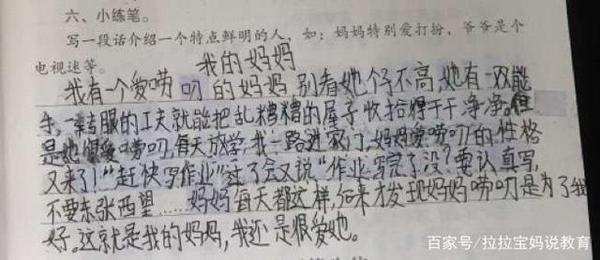 六、小练笔。
写一段话介绍一个特点鲜明的人，如：妈妈特别爱打扮，爷爷是个
电视迷等。
我的妈妈
我有一个爱唠叨的妈妈别看她个子不高,她有一双能
手,一转眼的工夫就能把乱糟糟的屋子收拾得干干净净。但
是她很爱唠叨,每天放学,我一踏进家门,妈妈爱唠叨的性格
又来了!“赶快写作业”过了会又说“作业写完了没?要认真写,
不要东张西望……妈妈每天都这样,后来才发现妈妈唠叨是为了我
好。这就是我的妈妈,我还是很爱她。
百家号/拉拉宝妈说教育